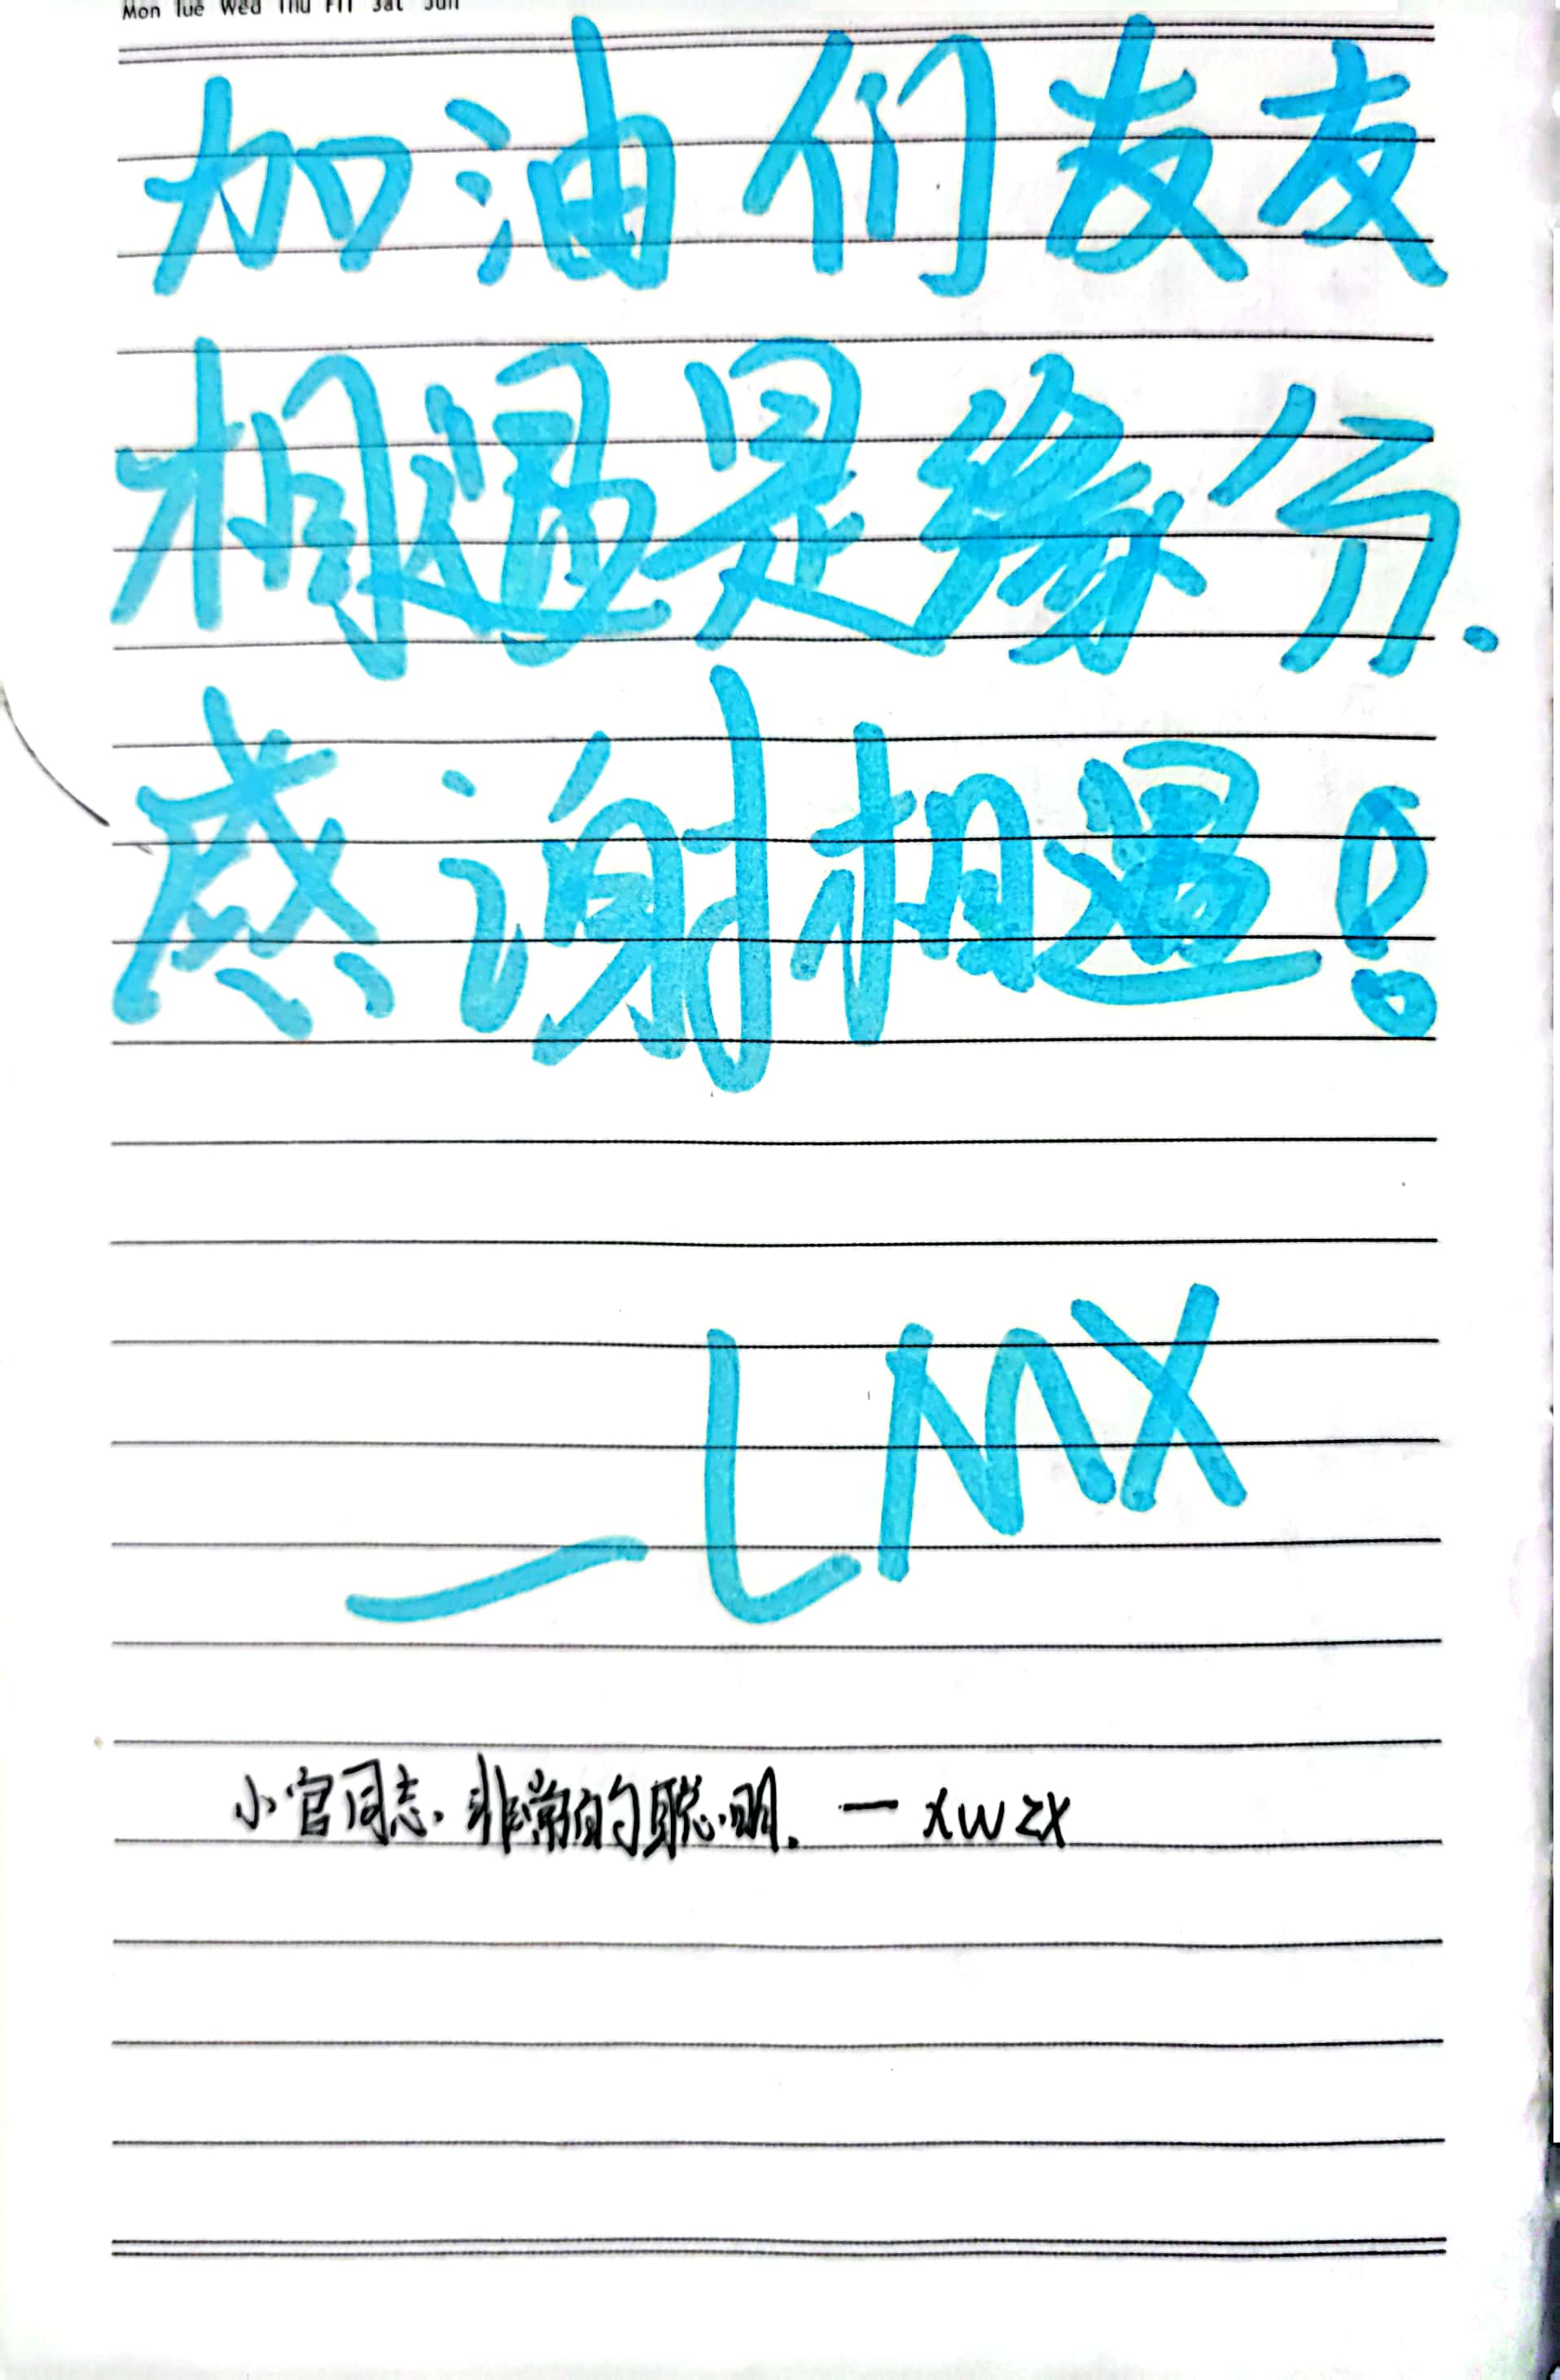 Mon Tue Wed Thu Fri Sat Sun
加油们友友
相遇是缘分.
感谢相遇!
—LMX
小官同志.非常的聪明.—xwzx